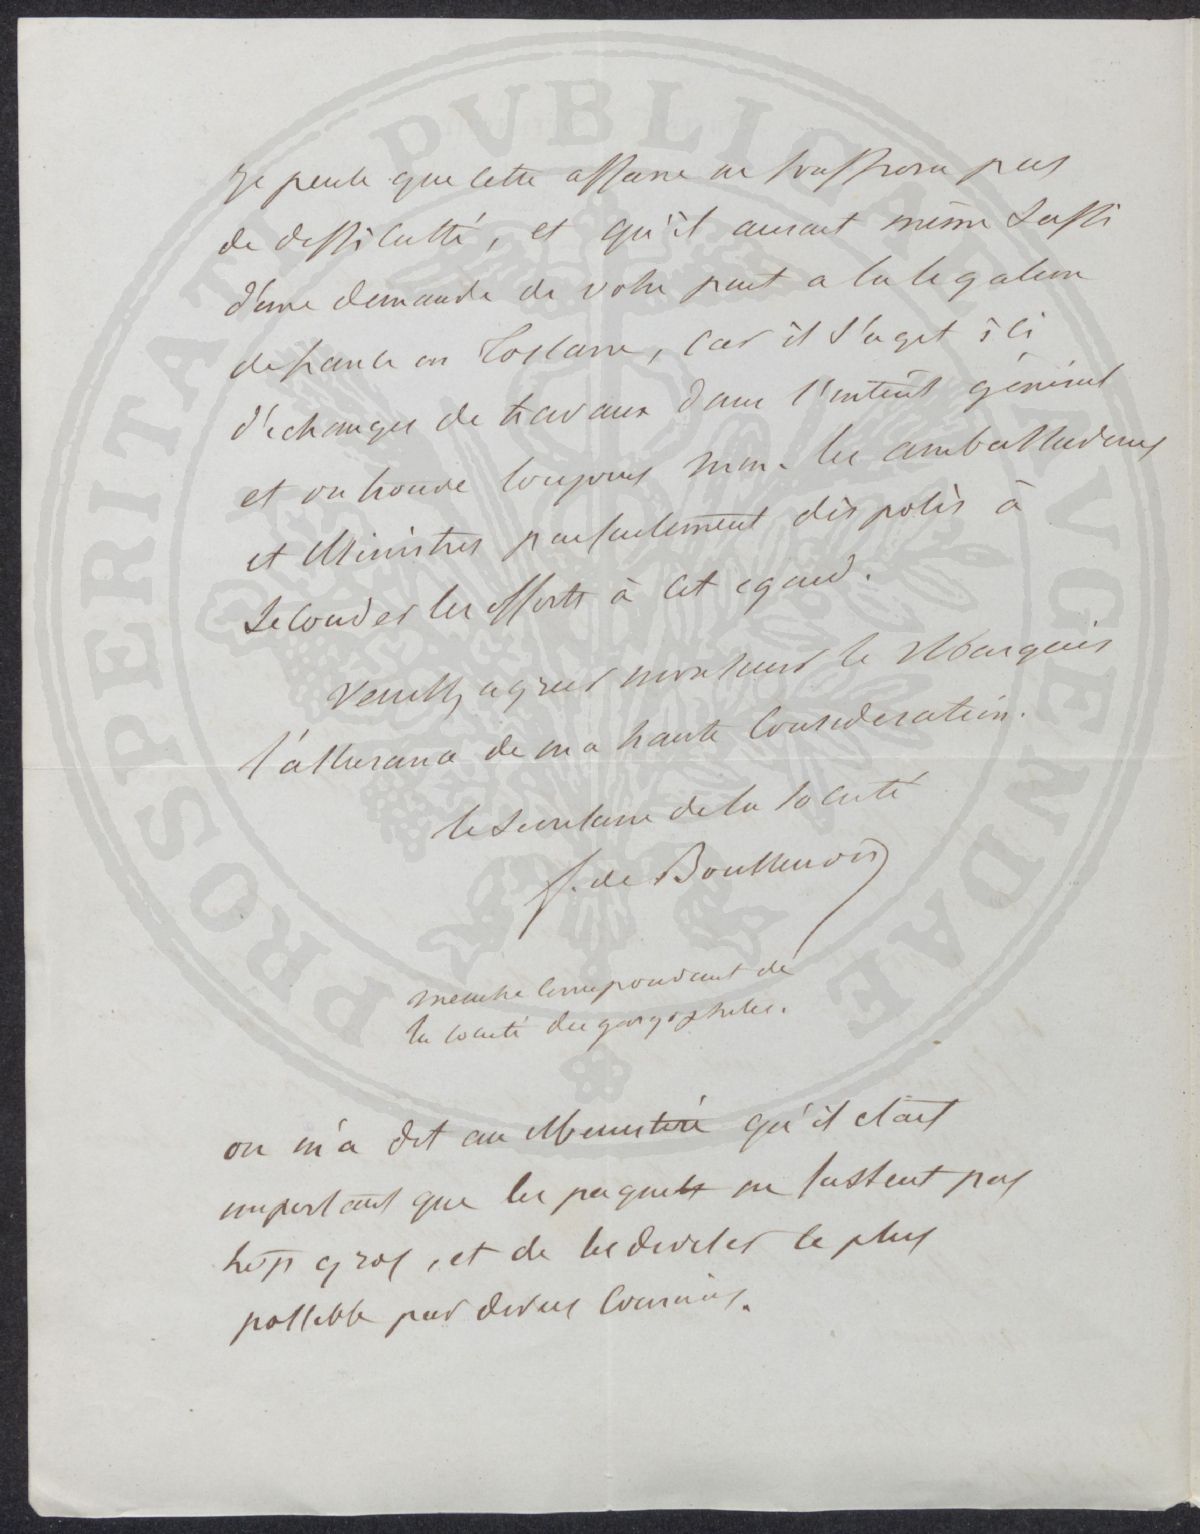 Je pense que cette affaire ne souffrira pas
de difficulté, et qu'il aurait même suffi
d'une demande de votre part a la legation
de france en Toscane, car il s'agit ici
d'echanges de travaux dans l'intérêt général
et on trouve toujours mm. les ambassadeurs
et Ministres parfaitement disposés à
seconder les efforts à cet egard.
Veuillez agreer monsieur le Marquis
l'assurance de ma haute Consideration.
le Secretaire de la Société
de Boutteroux
membre Correspondant de
la société des georgophiles.
on m'a dit au Ministere qu'il etait
important que les paquets ne fussent pas
trop gros, et de les diviser le plus
possible par divers Courriers.
PROSPERITATI PVBLICAE AVGENDAE